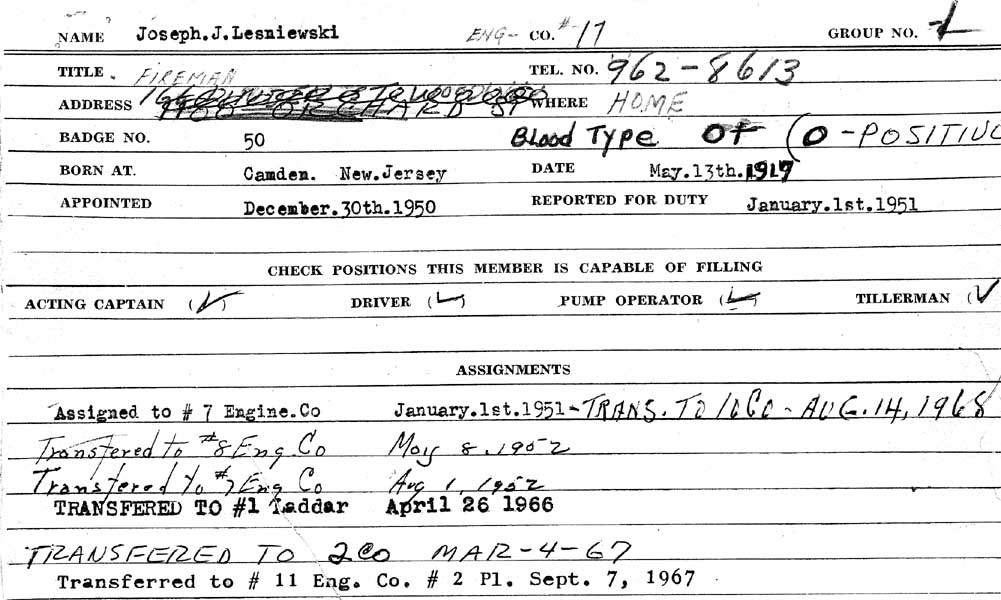 NAME Joseph.J.Lesniewski ENG- CO. #17 GROUP NO. 1
TITLE. FIREMAN TEL. NO. 962-8613
ADDRESS 1100 ORCHARD ST WHERE HOME
BADGE NO. 50 Blood Type O+ (O-POSITIVE
BORN AT. Camden. New.Jersey DATE May.13th.1917
APPOINTED December.30th.1950 REPORTED FOR DUTY January.1st.1951
CHECK POSITIONS THIS MEMBER IS CAPABLE OF FILLING
ACTING CAPTAIN (✓) DRIVER (✓) PUMP OPERATOR (✓) TILLERMAN (✓
ASSIGNMENTS
Assigned to # 7 Engine.Co January.1st.1951-TRANS. TO 10CO - AUG. 14, 1968
Transfered to #8 Eng. Co May 8. 1952
Transfered to #7 Eng Co Aug 1, 1952
TRANSFERED TO #1 Laddar April 26 1966
TRANSFERED TO 2CO MAR-4-67
Transferred to # 11 Eng. Co. # 2 Pl. Sept. 7, 1967